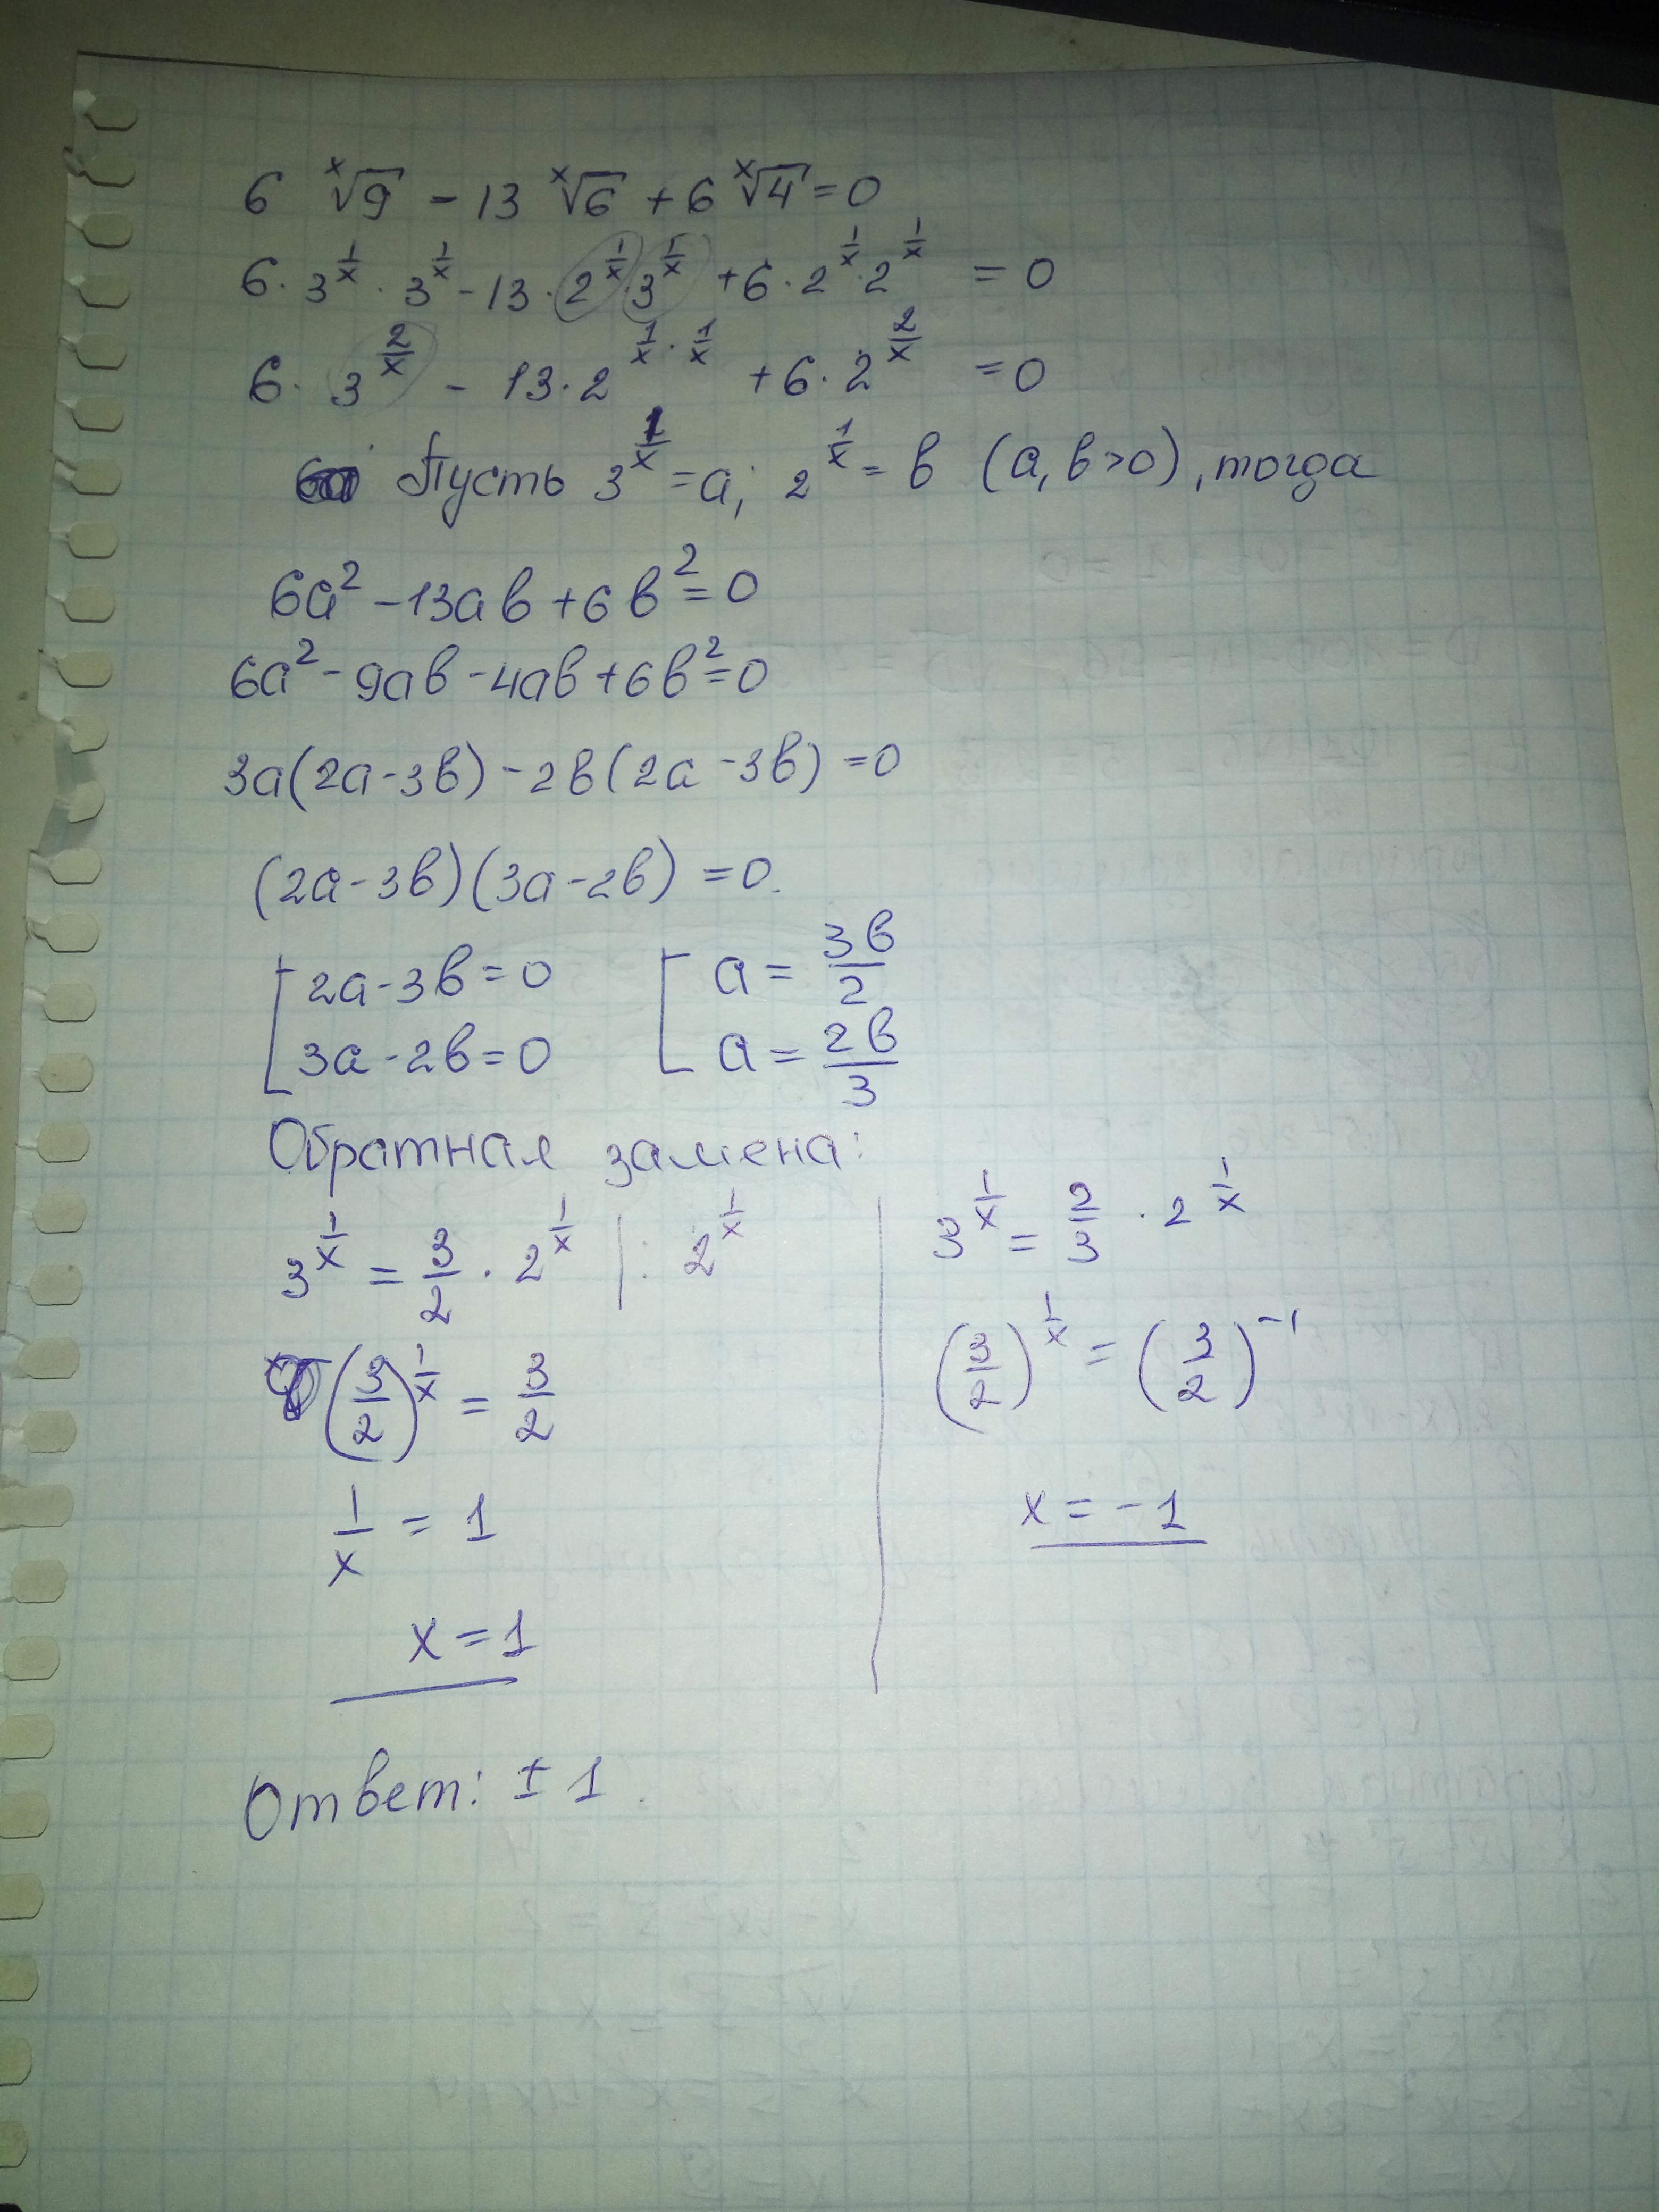 6 ˣ√9 - 13 ˣ√6 + 6 ˣ√4 = 0
6 · 3^(1/x) · 3^(1/x) - 13 · 2^(1/x) · 3^(1/x) + 6 · 2^(1/x) · 2^(1/x) = 0
6 · 3^(2/x) - 13 · 2^(1/x · 1/x) + 6 · 2^(2/x) = 0
Пусть 3^(1/x) = a; 2^(1/x) = b (a, b > 0), тогда
6a² - 13ab + 6b² = 0
6a² - 9ab - 4ab + 6b² = 0
3a(2a - 3b) - 2b(2a - 3b) = 0
(2a - 3b)(3a - 2b) = 0.
[ 2a - 3b = 0 [ a = 3b/2
3a - 2b = 0 a = 2b/3
Обратная замена:
3^(1/x) = 3/2 · 2^(1/x) | : 2^(1/x)
(3/2)^(1/x) = 3/2
1/x = 1
x = 1
3^(1/x) = 2/3 · 2^(1/x)
(3/2)^(1/x) = (3/2)^-1
x = -1
Ответ: ± 1.